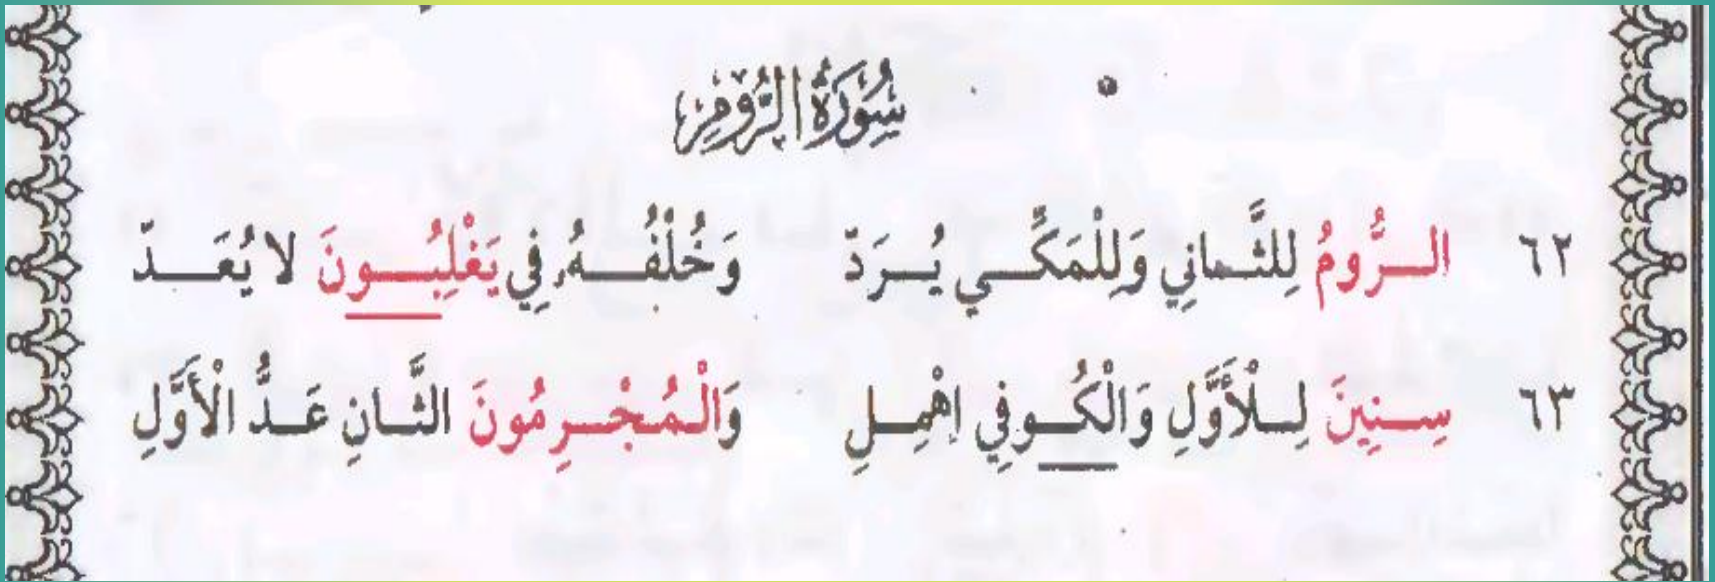 سُورَةُ الرُّومِ
٦٢ الـرُّومُ لِلثَّـانِي وَلِلْمَكِّـي يُـرَدّ وَخُلْفُـهُ فِي يَغْلِبُـونَ لا يُعَـدّ
٦٣ سِـنِينَ لِـلْأَوَّلِ وَالْكُـوفِي اهْمِـلِ وَالْـمُـجْـرِمُونَ الثَّـانِ عَـدُّ الْأَوَّلِ